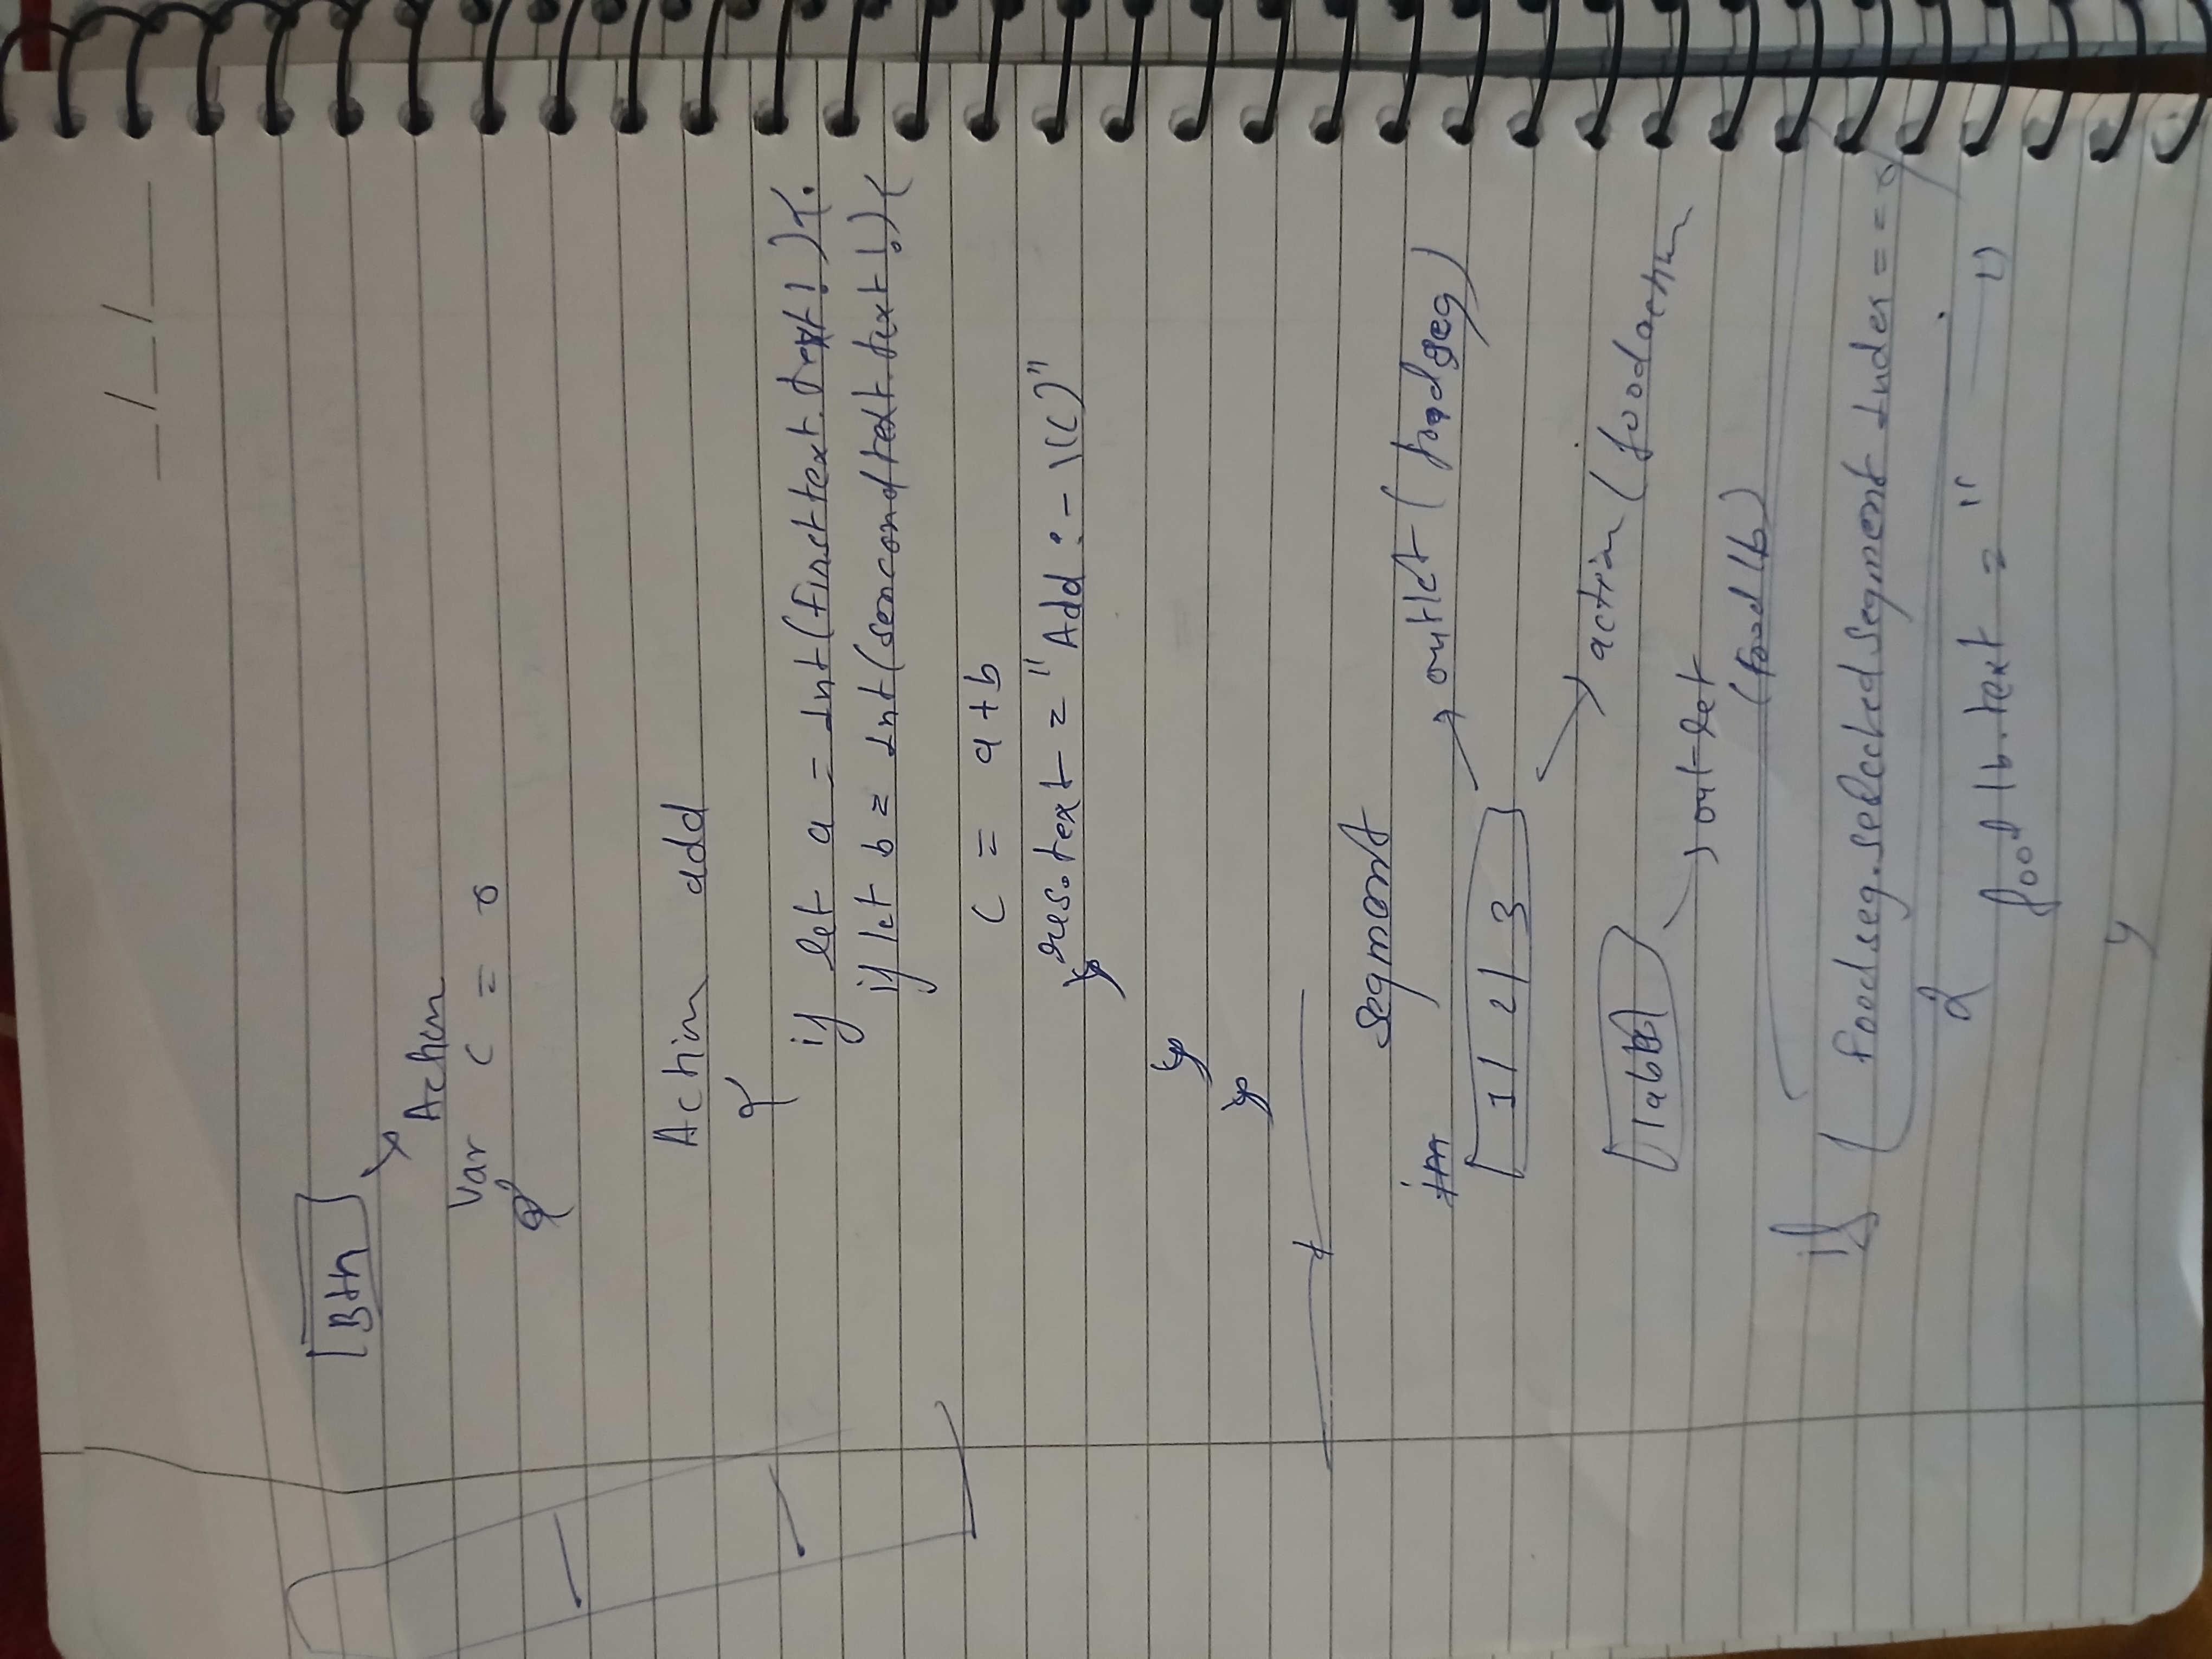 _/_/__
Btn
Action
Var c = 0
{
Action add
{
if let a = Int(firsttext.text!){
if let b = Int(sencondtext.text!){
c = a+b
res.text = "Add :- \(c)"
}
}
}
segment
outlet (foodseg)
1 / 2 / 3
action (foodaction
label
outlet
(foodlb)
if (foodseg.selectedSegment Index == 0)
{
foodlb.text = " — "
}